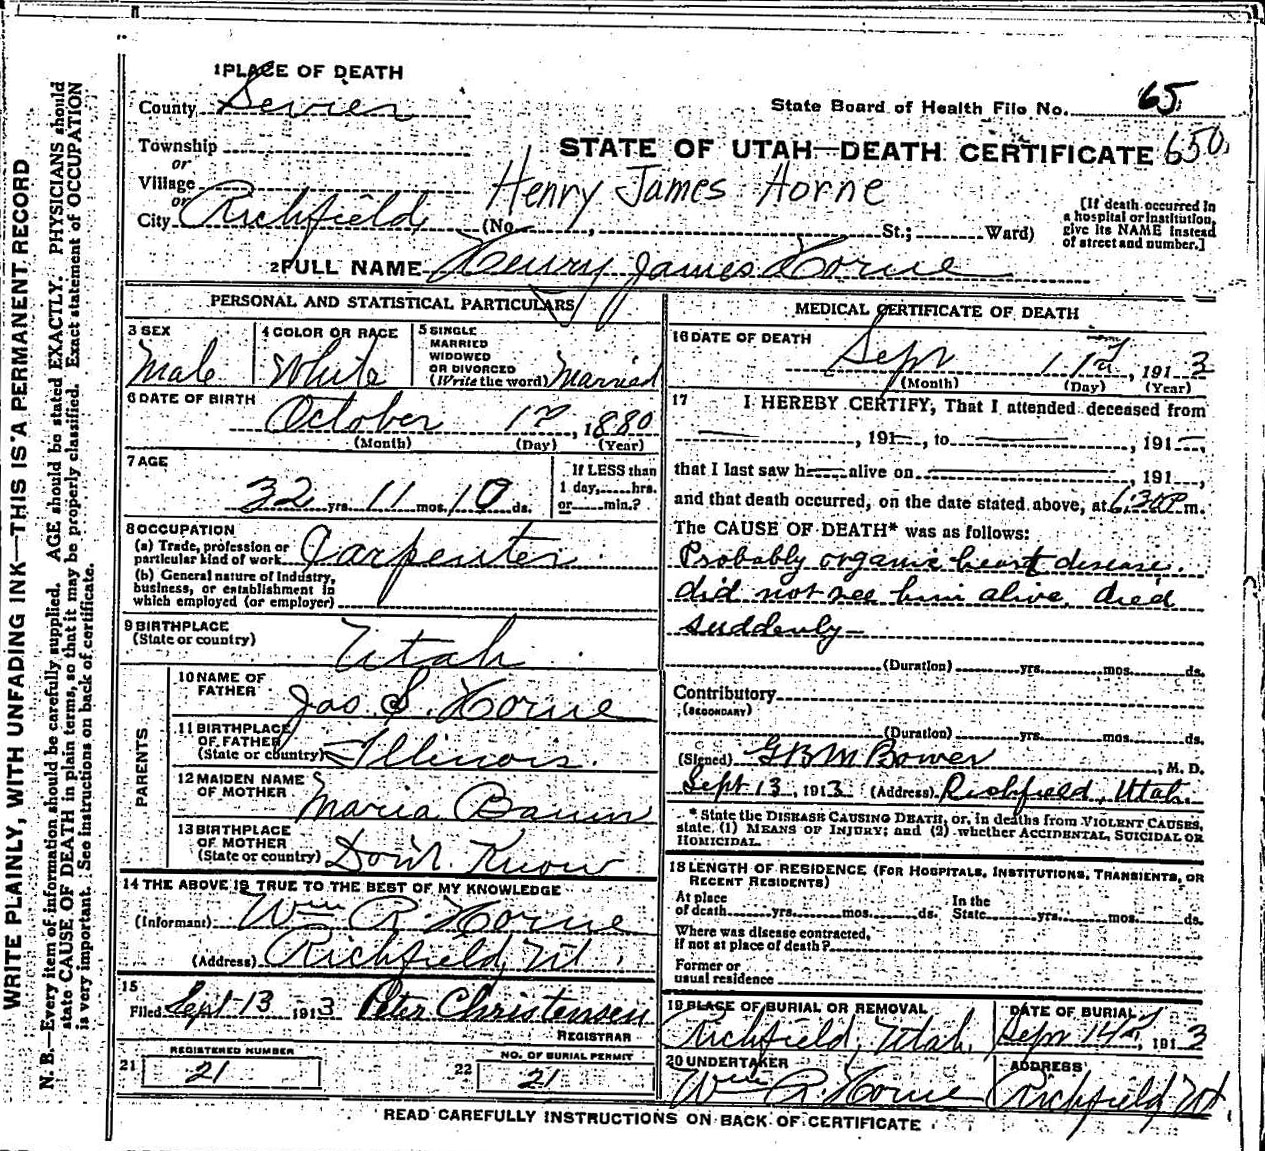 WRITE PLAINLY, WITH UNFADING INK—THIS IS A PERMANENT RECORD
N. B.—Every item of information should be carefully supplied. AGE should be stated EXACTLY. PHYSICIANS should
state CAUSE OF DEATH in plain terms, so that it may be properly classified. Exact statement of OCCUPATION
is very important. See instructions on back of certificate.
1 PLACE OF DEATH
County Sevier
State Board of Health File No. 65
Township
STATE OF UTAH—DEATH CERTIFICATE 650
or
Village
Henry James Horne
or
City Richfield (No. , St.; Ward)
[If death occurred in
a hospital or institution,
give its NAME instead
of street and number.]
2 FULL NAME Henry James Horne
PERSONAL AND STATISTICAL PARTICULARS
3 SEX
Male
4 COLOR OR RACE
White
5 SINGLE
MARRIED
WIDOWED
OR DIVORCED
(Write the word) Married
6 DATE OF BIRTH
October 1st, 1880
(Month) (Day) (Year)
7 AGE
32 yrs. 11 mos. 10 ds.
If LESS than
1 day, hrs.
or min.?
8 OCCUPATION
(a) Trade, profession or
particular kind of work Carpenter
(b) General nature of industry,
business, or establishment in
which employed (or employer)
9 BIRTHPLACE
(State or country) Utah
PARENTS
10 NAME OF
FATHER Jao. S. Horne
11 BIRTHPLACE
OF FATHER
(State or country) Illinois.
12 MAIDEN NAME
OF MOTHER Maria Baum
13 BIRTHPLACE
OF MOTHER
(State or country) Don't Know
14 THE ABOVE IS TRUE TO THE BEST OF MY KNOWLEDGE
(Informant) Wm R. Horne
(Address) Richfield, Ut.
15
Filed Sept 13 1913 Peter Christensen
REGISTRAR
21 REGISTERED NUMBER
21
22 NO. OF BURIAL PERMIT
21
MEDICAL CERTIFICATE OF DEATH
16 DATE OF DEATH
Sept 11, 1913
(Month) (Day) (Year)
17 I HEREBY CERTIFY, That I attended deceased from
, 191 , to , 191
that I last saw h alive on , 191 ,
and that death occurred, on the date stated above, at 6:30P m.
The CAUSE OF DEATH* was as follows:
Probably organic heart disease.
did not see him alive. died
suddenly—
(Duration) yrs. mos. ds.
Contributory
(SECONDARY)
(Duration) yrs. mos. ds.
(Signed) G B M Bower, M. D.
Sept 13, 1913 (Address) Richfield, Utah.
* State the DISEASE CAUSING DEATH, or, in deaths from VIOLENT CAUSES,
state (1) MEANS OF INJURY; and (2) whether ACCIDENTAL, SUICIDAL OR
HOMICIDAL.
18 LENGTH OF RESIDENCE (FOR HOSPITALS, INSTITUTIONS, TRANSIENTS, OR
RECENT RESIDENTS)
At place
of death yrs. mos. ds.
In the
State yrs. mos. ds.
Where was disease contracted,
if not at place of death?
Former or
usual residence
19 PLACE OF BURIAL OR REMOVAL
Richfield, Utah.
DATE OF BURIAL
Sept 14, 1913
20 UNDERTAKER
Wm R. Horne
ADDRESS
Richfield Ut
READ CAREFULLY INSTRUCTIONS ON BACK OF CERTIFICATE